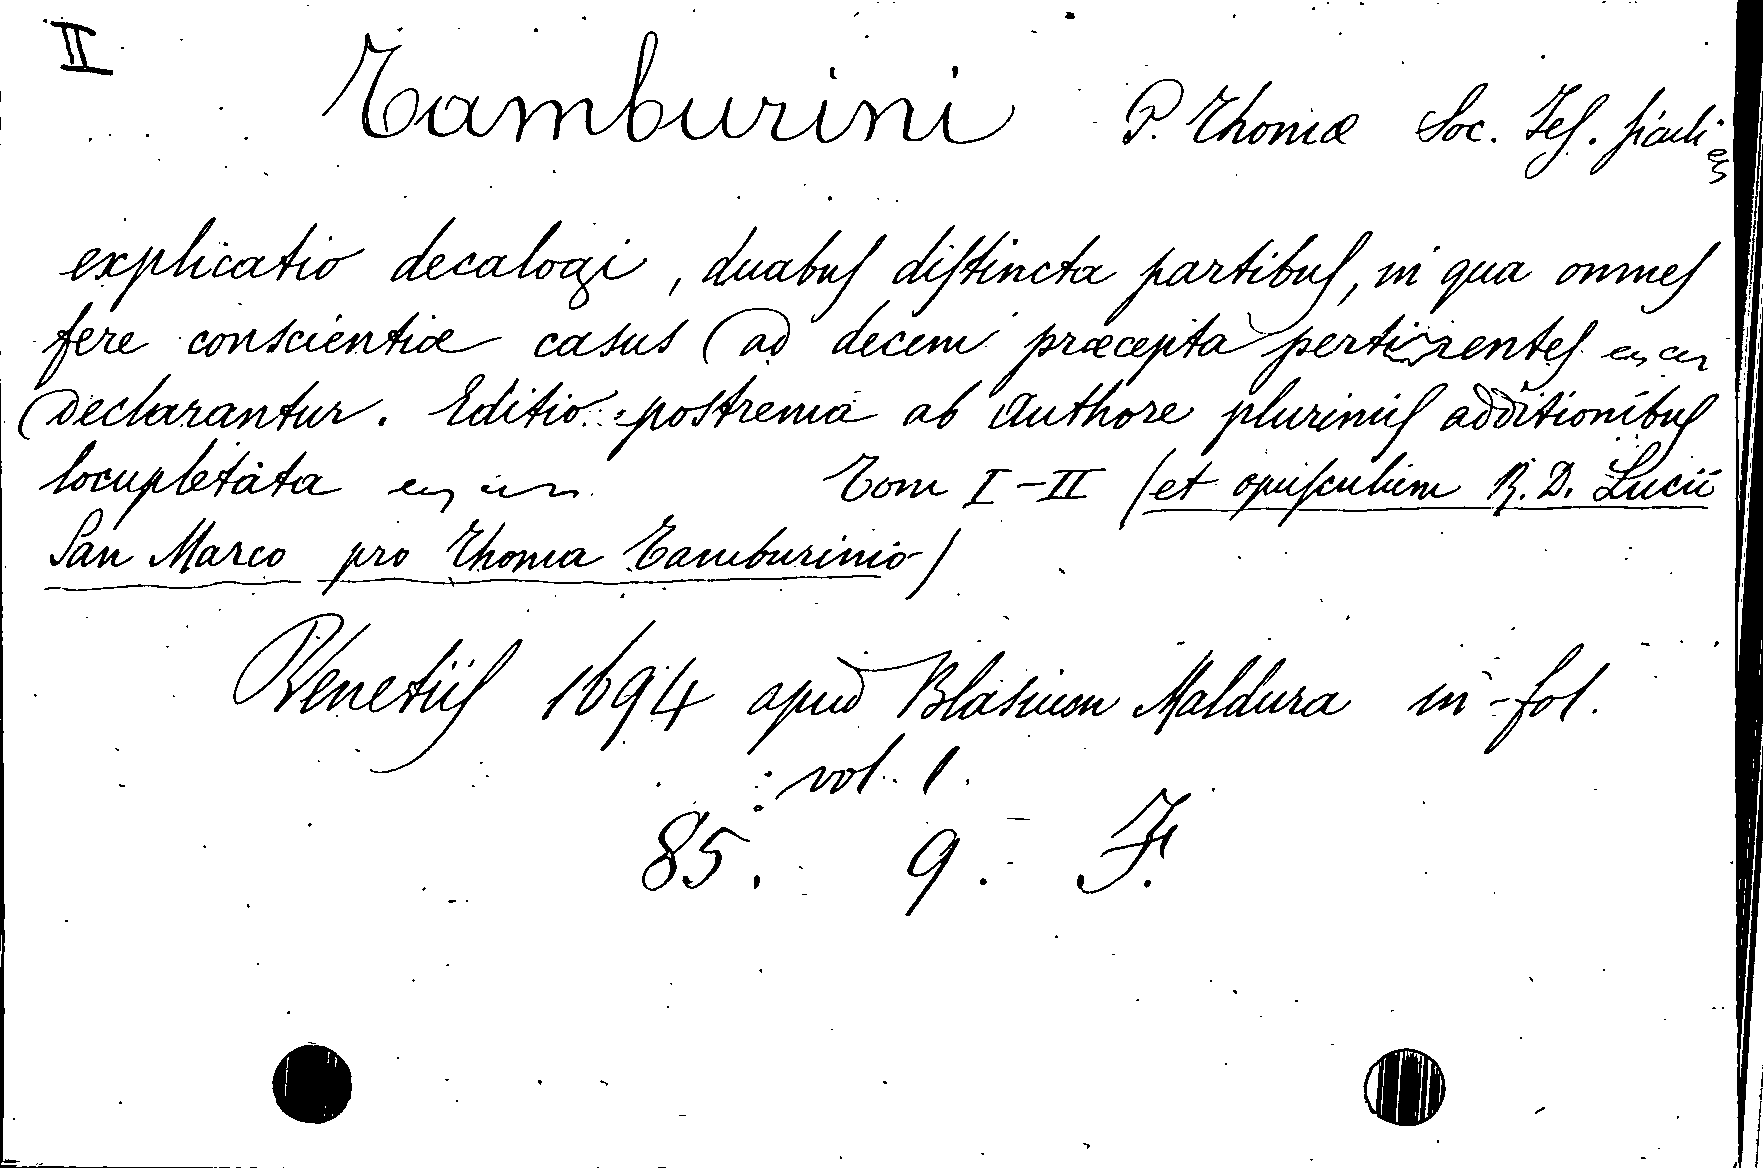 II
Tamburini P. Thomæ Soc. Jes. siculi
explicatio decalogi, duabus distincta partibus, in qua omnes
fere conscientiæ casus ad decem præcepta pertinentes
declarantur. Editio postrema ab Authore plurimis additionibus
locupletata Tom I-II (et opusculum R. D. Lucii
San Marco pro Thoma Tamburinio)
Venetiis 1694 apud Blasium Maldura in-fol.
vol. 1.
85. 9. F.